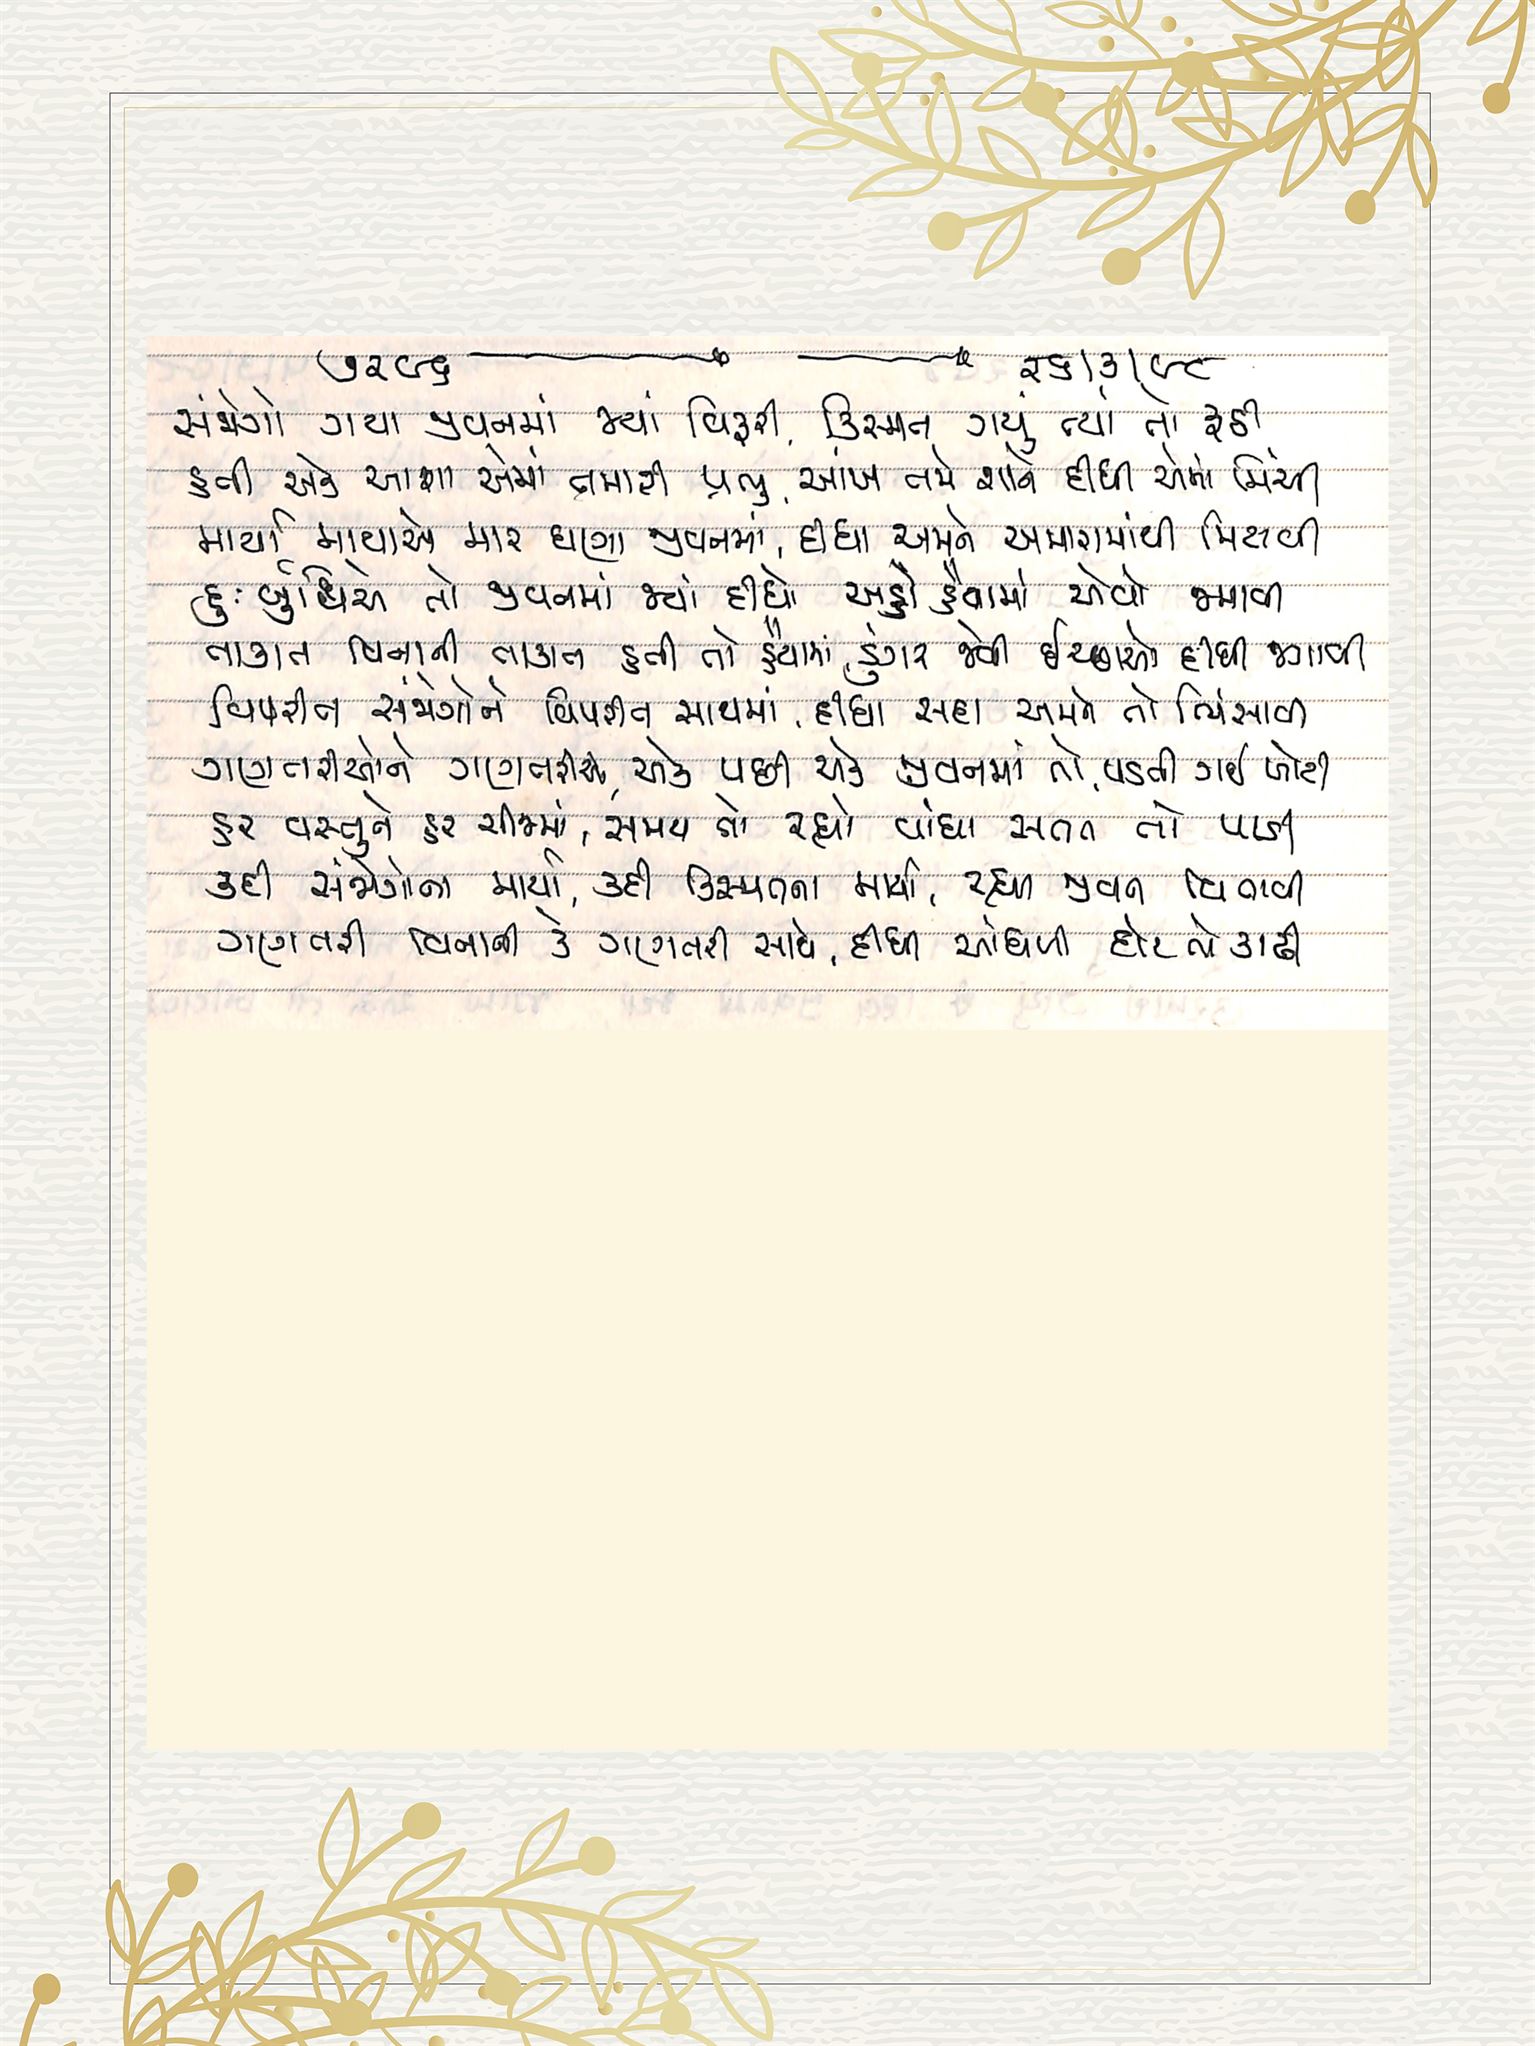 ૭૨૯૬ ૨૬/૩/૯૮
સંજોગો ગયા જીવનમાં જ્યાં વિફરી, કિસ્મત ગયું ત્યાં તો રૂઠી
હતી એક આશા એમાં તમારી પ્રભુ, આંખ તમે શાને દીધી એમાં મિંચી
માર્યા માયાએ માર ઘણા જીવનમાં, દીધા અમને અમારામાંથી મિટાવી
દુઃર્બુધ્ધિએ તો જીવનમાં જ્યાં દીધો અડ્ડો હૈયામાં એવો જમાવી
તાકાત વિનાની તાકાત હતી તો હૈયામાં, ડુંગર જેવી ઈચ્છાઓ દીધી જગાવી
વિપરીત સંજોગોને વિપરીત સાથમાં, દીધા સદા અમને તો ભિંસાવી
ગણતરીઓને ગણતરીઓ, એક પછી એક જીવનમાં તો, પડતી ગઈ ખોટી
હર વસ્તુને હર ચીજમાં, સમય તો રહ્યો વાંધા સતત તો પાડી
કદી સંજોગોના માર્યા, કદી કિસ્મતના માર્યા, રહ્યા જીવન વિતાવી
ગણતરી વિનાની કે ગણતરી સાથે, દીધી આંધળી દોટ તો કાઢી